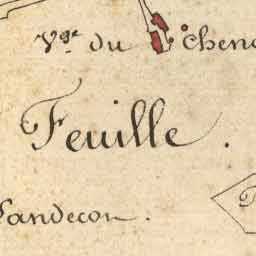 Vge. du Chene
Feuille.
Landecon.